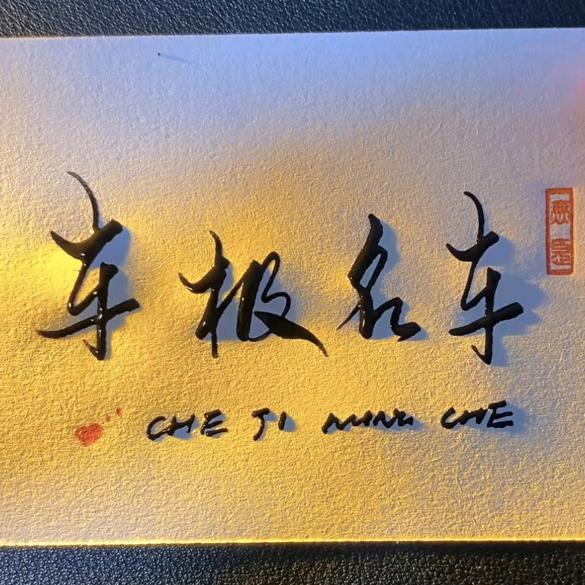 车极名车
CHE JI MING CHE